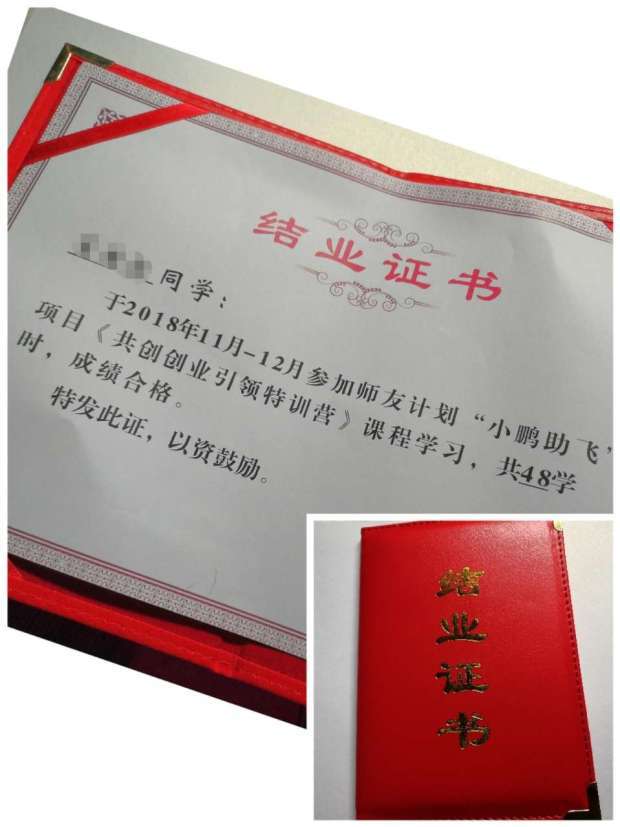 结业证书
同学：
于2018年11月-12月参加师友计划“小鹏助飞”
项目《共创创业引领特训营》课程学习，共48学
时，成绩合格。
特发此证，以资鼓励。
结
业
证
书